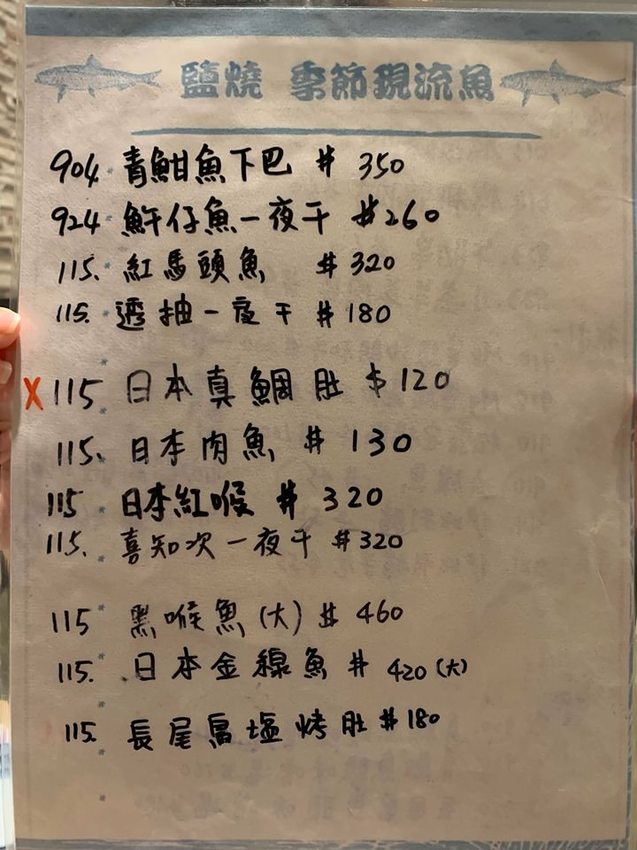 鹽燒 季節現流魚
904. 青魽魚下巴 # 350
924. 魽仔魚一夜干 #260
115. 紅馬頭魚 # 320
115. 透抽一夜干 # 180
X 115 日本真鯛肚 $ 120
115. 日本肉魚 # 130
115 日本紅喉 # 320
115. 喜知次一夜干 #320
115 黑喉魚(大) # 460
115. 日本金線魚 # 420(大)
115. 長尾鳥塩烤肚 #180